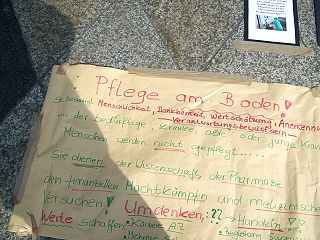 Pflege am Boden!
Sie benötigt Menschlichkeit, Dankbarkeit, Wertschätzung, Anerkennung
Verantwortungsbewusstsein
.... der bedürftige, kranke, alte oder junge
Menschen werden nicht gepflegt....
Sie dienen der Wissenschaft, der Pharmazie
den finanziellen Machtkämpfen und medizinischen
Versuchen! Umdenken ?? → Handeln!?
Werte schaffen • Kürzere AZ
• Mehrere